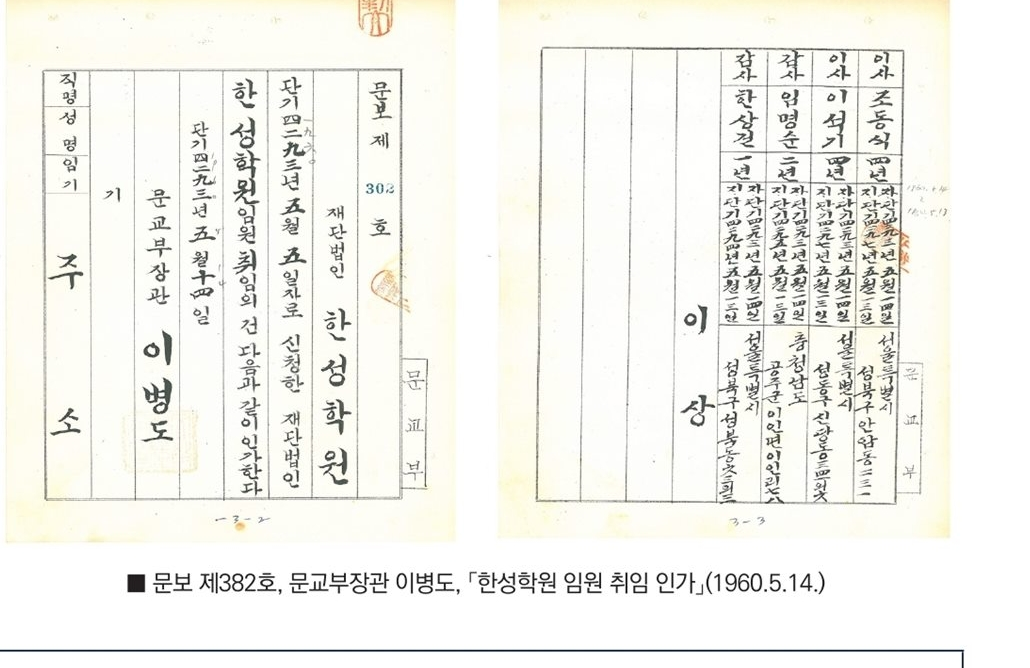 문보 제 302 호
재단법인 한성학원
단기四二九三년 五월 五일자로 신청한 재단법인
한성학원 임원 취임의 건 다음과 같이 인가한다
단기四二九三년 五월十四일
문교부장관 이병도
기
직명 성명 임기 주소
문교부
一3-2
이사 조동식 四년 자단기四二九三년五월一四일 지단기四二九七년五월一三일 서울특별시 성북구 안암동
이사 이석기 四년 자단기四二九三년五월一四일 지단기四二九七년五월一三일 서울특별시 성동구 신당동
감사 임명순 二년 자단기四二九三년五월一四일 지단기四二九五년五월一三일 충청남도 공주군 이인면 이인리
감사 한상걸 一년 자단기四二九三년五월一四일 지단기四二九四년五월一三일 서울특별시 성북구 성북동
이상
문교부
3-3
■ 문보 제382호, 문교부장관 이병도, 「한성학원 임원 취임 인가」(1960.5.14.)